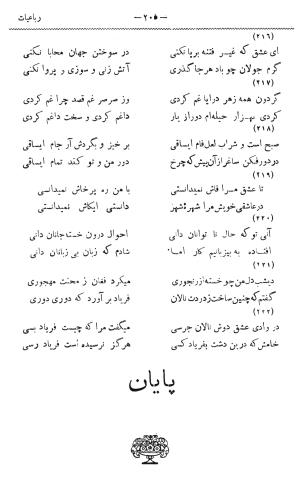 رباعیات —۲۰۵—
(۲۱۶)
ای عشق که غیر فتنه برپا نکنی در سوختن جهان محابا نکنی
گرم جولان چو باد هرجا گذری آتش زنی و سوزی و پروا نکنی
(۲۱۷)
گردون همه زهر درایاغم کردی وز صرصر غم قصد چراغم کردی
کردی بهزار حیله‌ام دور از یار داغم کردی و سخت داغم کردی
(۲۱۸)
صبح است و شراب لعل فام ایساقی بر خیز و بگردش آر جام ایساقی
ساغر از آن پیش که چرخ دور من و تو کند تمام ایساقی
(۲۱۹)
تا عشق مرا فاش نمیدانستی با من ره پرخاش نمیدانستی
در عاشقی خویش مرا شهره شهر دانستی ایکاش نمیدانستی
(۲۲۰)
آنی تو که حال نا توانان دانی احوال درون خسته جانان دانی
افتاده به بیزبانیم کار اما شادم که زبان بی زبانان دانی
(۲۲۱)
دیشب دل من چو خسته از رنجوری میکرد فغان ز محنت مهجوری
گفتم که چنین ساخت ز دردت نالان فریاد بر آورد که دوری دوری
(۲۲۲)
در وادی عشق دوش نالان جرسی میگفت مرا که چیست فریاد بسی
خامش که در بن دشت بفریاد کسی هرگز نرسیده است فریاد رسی
پایان